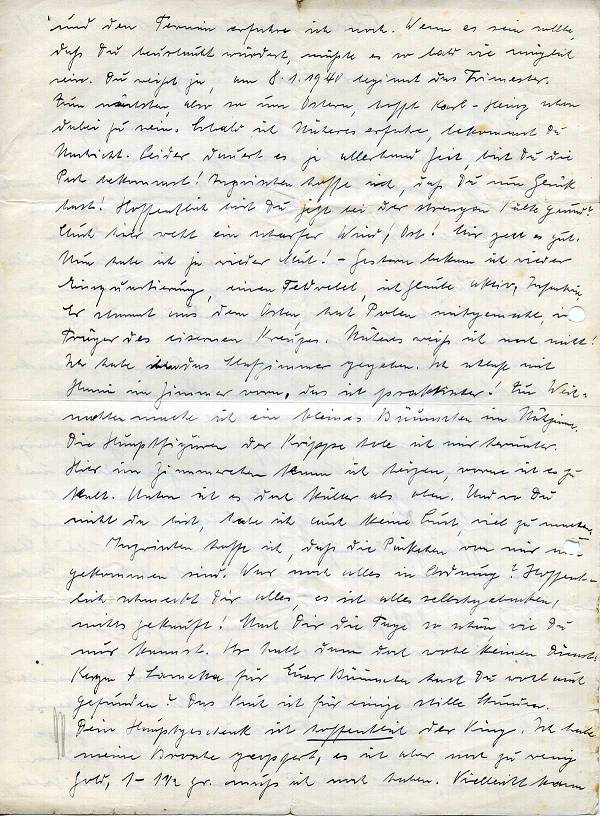 und den Termin erfahre ich noch. Wenn es sein sollte,
daß Du beurlaubt würdest, müßte es so bald wie möglich
sein. Du weißt ja, am 8.1.1940 beginnt das Trimester.
Zum nächsten, also so um Ostern, hofft Karl-Heinz schon
dabei zu sein. Sobald ich Näheres erfahre, bekommst Du
Nachricht. Leider dauert es ja allerhand Zeit, bis Du die
Post bekommst! Inzwischen hoffe ich, daß Du nun Glück
hast! Hoffentlich bist Du jetzt bei der strengen Kälte gesund?
Auch hier weht ein scharfer Wind, Ost! Mir geht es gut.
Nun habe ich ja wieder Mut! - Gestern bekam ich wieder
Einquartierung, einen Feldwebel, ich glaube aktiv, Infanterie,
Er stammt aus dem Osten, hat Polen mitgemacht, ist
Träger des eisernen Kreuzes. Näheres weiß ich noch nicht!
Ich habe ihm das Schlafzimmer gegeben. Ich schlafe mit
im Zimmer vorn, das ist praktischer! Zu Weih-
nachten mache ich ein kleines Bäumchen im
Die Hauptfiguren der Krippe hole ich mir herunter.
Hier im Zimmerchen kann ich heizen, vorne ist es zu
kalt. Unten ist es doch kälter als oben. Und wo Du
nicht da bist, habe ich auch keine Lust, viel zu machen.
Inzwischen hoffe ich, daß die Päckchen von mir nun
gekommen sind. War noch alles in Ordnung? Hoffent-
lich schmeckt Dir alles, es ist alles selbstgebacken,
nichts gekauft! Mach Dir die Tage so schön, wie Du
nur kannst. Ihr habt dann doch wohl keinen Dienst.
Kerzen + Lametta für Euer Bäumchen hast Du wohl auch
gefunden? Das Buch ist für einige stille Stunden.
Dein Hauptgeschenk ist hoffentlich der Ring. Ich habe
meine Brosche geopfert, es ist aber noch zu wenig
Gold, 1 - 1½ gr. muß ich noch haben. Vielleicht kann